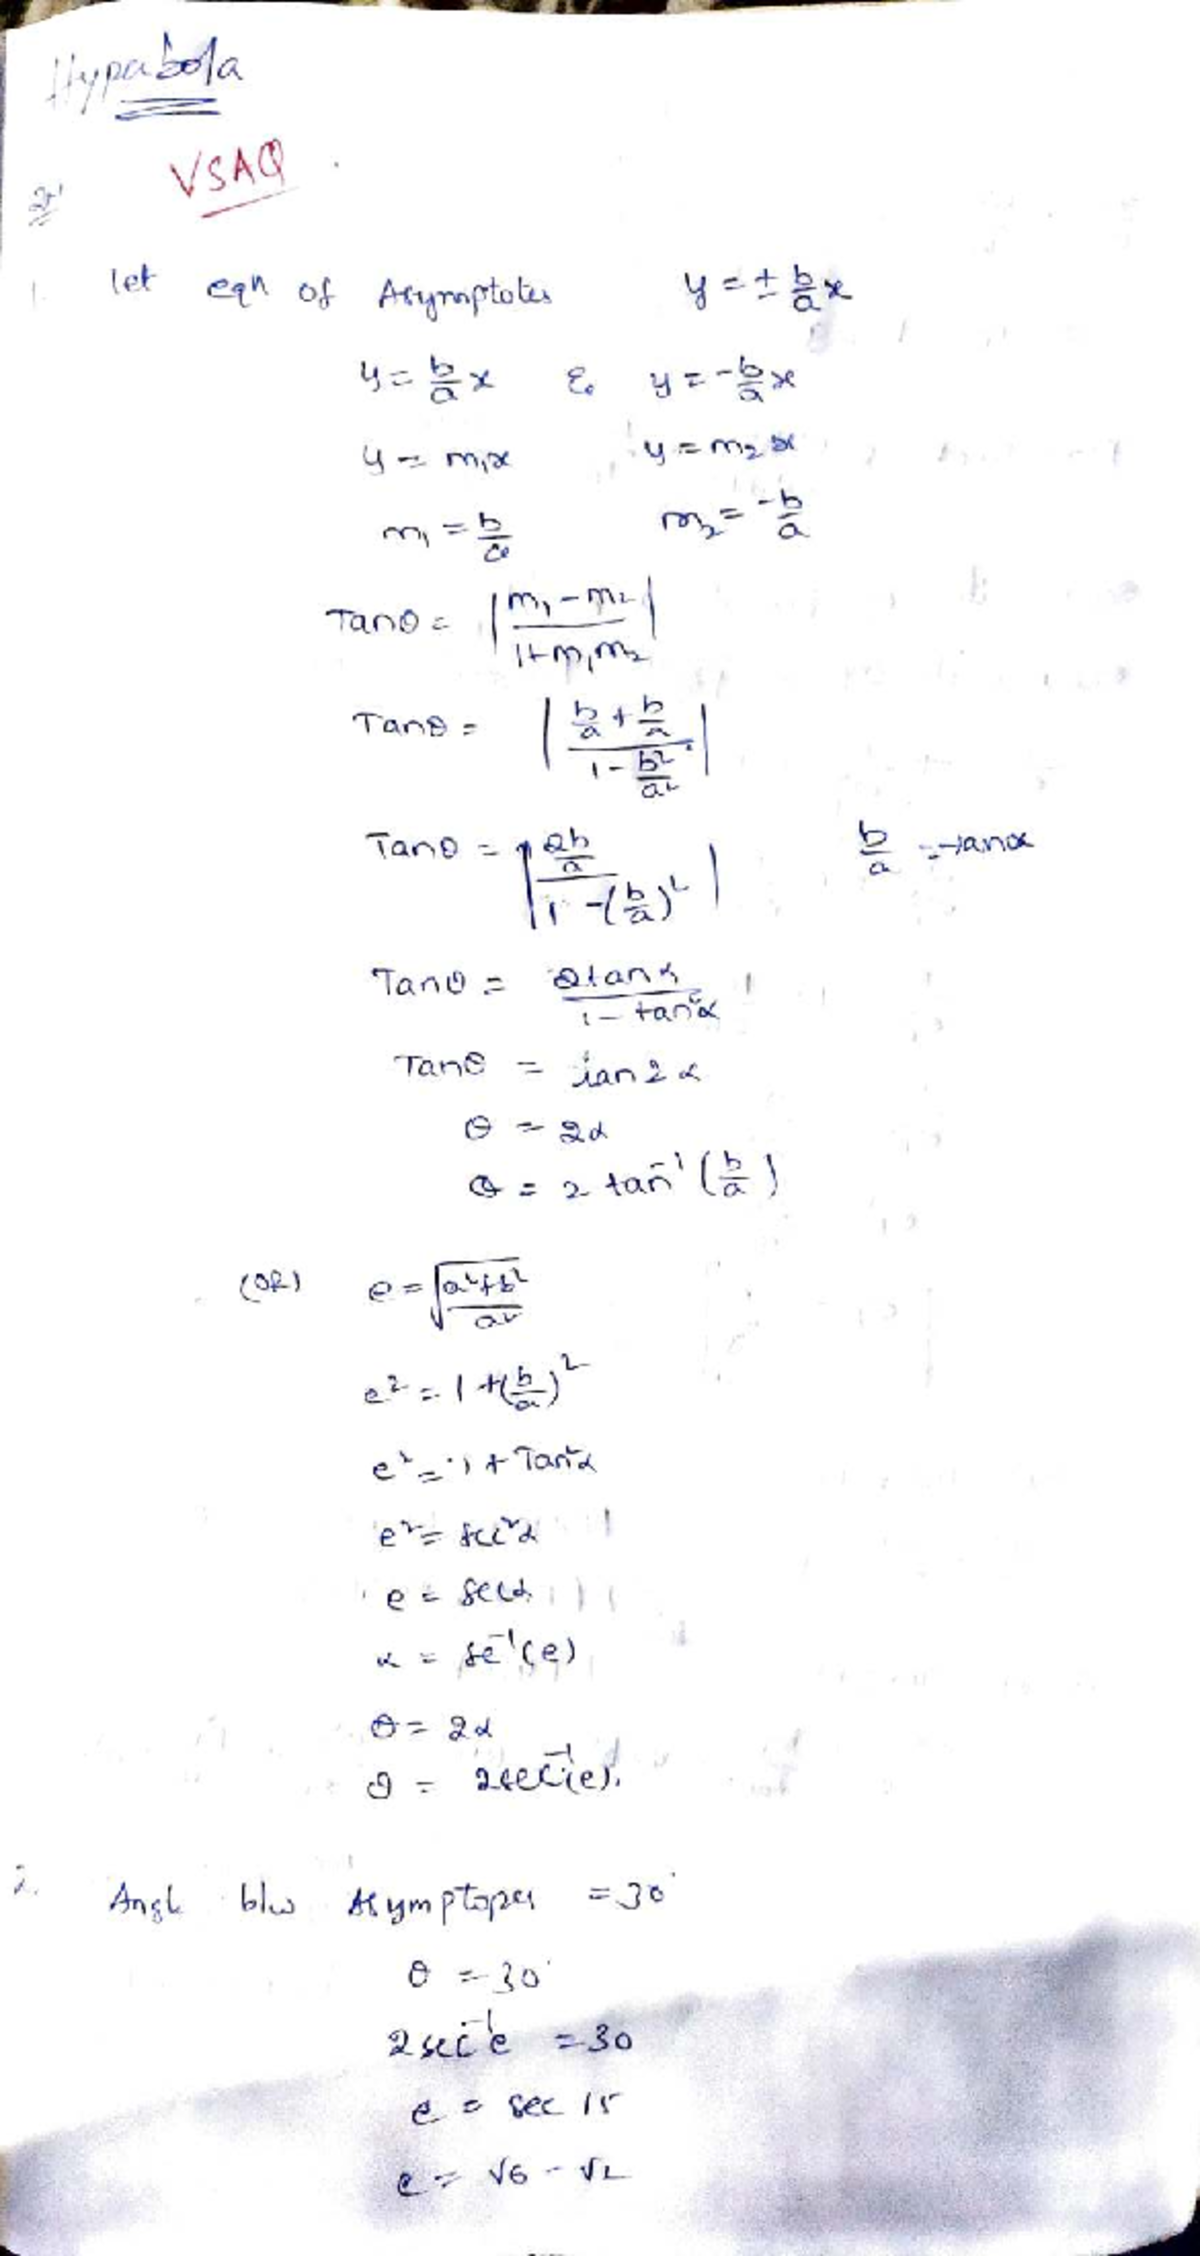 Hyperbola
VSAQ
1. let eqn of Asymptotes y = ± b/a x
y = b/a x & y = -b/a x
y = m₁x y = m₂x
m₁ = b/a m₂ = -b/a
Tanθ = |(m₁ - m₂)/(1+m₁m₂)|
Tanθ = |(b/a + b/a)/(1 - b²/a²)|
Tanθ = |(2b/a)/(1 - (b/a)²)| b/a = tanα
Tanθ = 2tanα/(1 - tan²α)
Tanθ = tan2α
θ = 2α
θ = 2 tan⁻¹(b/a)
(OR) e = √((a²+b²)/a²)
e² = 1 + (b/a)²
e² = 1 + Tan²α
e² = sec²α
e = secα
α = sec⁻¹(e)
θ = 2α
θ = 2sec⁻¹(e).
2. Angle b/w Asymptopes = 30°
θ = 30°
2sec⁻¹e = 30
e = sec 15
e = √6 - √2